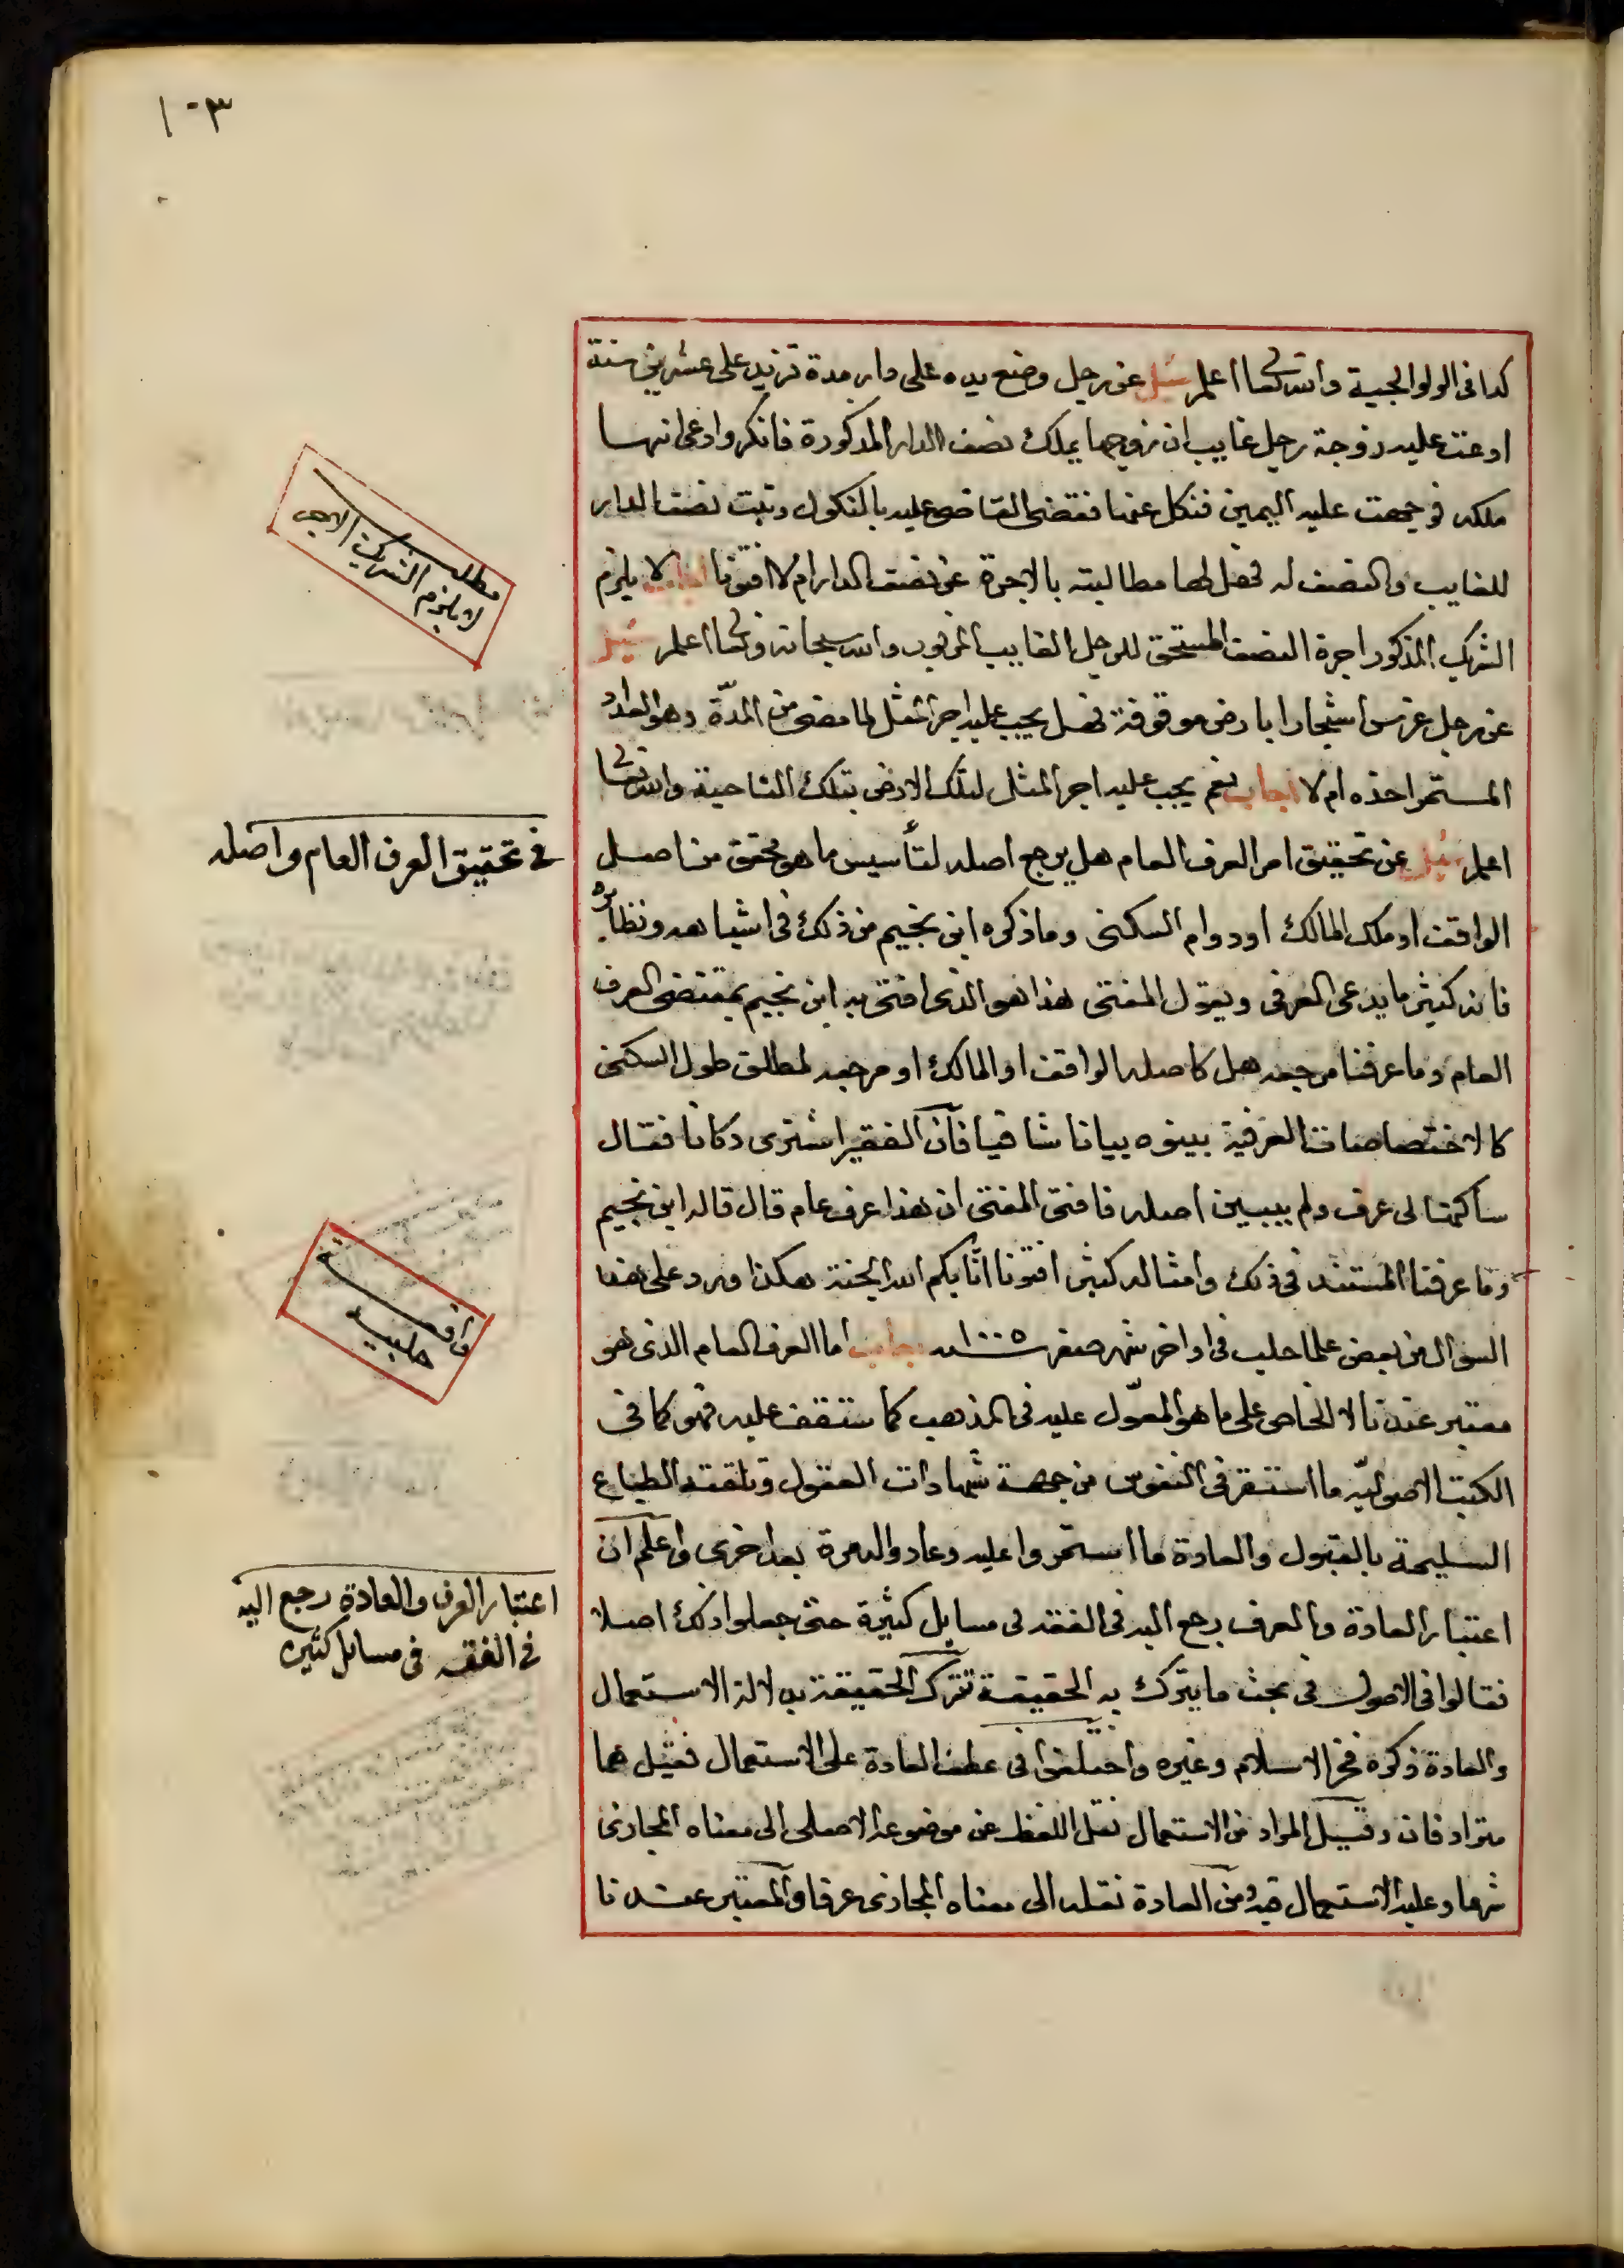 ١٠٣
كذا فى الولوالجية والله تعالى اعلم سئل عن رجل وضع يده على دار مدة تزيد على عشرين سنة
ادعت عليه زوجة رجل غايب ان زوجها يملك نصف الدار المذكورة فانكر وادعى انها
ملكه فوجهت عليه اليمين فنكل عنها فقضى القاضى عليه بالنكول وثبت نصف الدار
للغايب والنصف له فهل لها مطالبته بالاجرة عن نصف الدار ام لا افتونا اجاب لا يلزم
الشريك المذكور اجرة النصف المستحق للرجل الغايب المزبور والله سبحانه وتعالى اعلم سئل
عن رجل غرس اشجارا بارض موقوفة فهل يجب عليه اجر المثل لما مضى من المدّة وهو العداد
المستمر اخذه ام لا اجاب نعم يجب عليه اجر المثل لتلك الارض بتلك الناحية والله تعالى
اعلم سئل عن تحقيق امر العرف العام هل يرجع اصله لتأسيس ما هو محقق من اصل
الواقف او ملك المالك او دوام السكنى وما ذكره ابن نجيم من ذلك فى اشباهه ونظايره
فانه كثيرما يدعى العرفى ويقول المفتى هذا هو الذى افتى به ابن نجيم بمقتضى العرف
العام وما عرفنا مرجعه هل كاصله الواقف او المالك او مرجعه لمطلق طول السكنى
كالاختصاصات العرفية بينوه بيانا شافيا فان الفقير اشترى دكانا فقال
ساكنها لى عرف ولم يبين اصله فافتى المفتى ان هذا عرف عام قال قاله ابن نجيم
وما عرفنا المستند فى ذلك وامثاله كثير افتونا اثابكم الله الجنة هكذا ورد على هذا
السؤال من بعض علما حلب فى اواخر شهر صفر سنة ١٠٠٥ اجاب اما العرف العام الذى هو
معتبر عندنا لا الخاص على ما هو المعوّل عليه فى المذهب كما ستقف عليه فهو كما فى
الكتب الاصوليّه ما استقر فى النفوس من جهة شهادات العقول وتلقته الطباع
السليمة بالقبول والعادة ما استمروا عليه وعادوا له مرة بعد اخرى واعلم ان
اعتبار العادة والعرف رجع اليه فى الفقه فى مسايل كثيرة حتى جعلوا ذلك اصلا
فقالوا فى الاصول فى بحث ما يترك به الحقيقة تترك الحقيقة بدلالة الاستعمال
والعادة ذكره فخر الاسلام وغيره واختلفوا فى عطف العادة على الاستعمال فقيل هما
مترادفان وقيل المراد من الاستعمال نقل اللفظ عن موضوعه الاصلى الى معناه المجازى
شرعا وغلبة الاستعمال فيه ومن العادة نقله الى معناه المجازى عرفا والمعتبر عندنا
مطلب
لا يلزم الشريك
فى تحقيق العرف العام واصله
واقعة
حلبيه
اعتبار العرف والعادة رجع اليه
فى الفقه فى مسائل كثيره